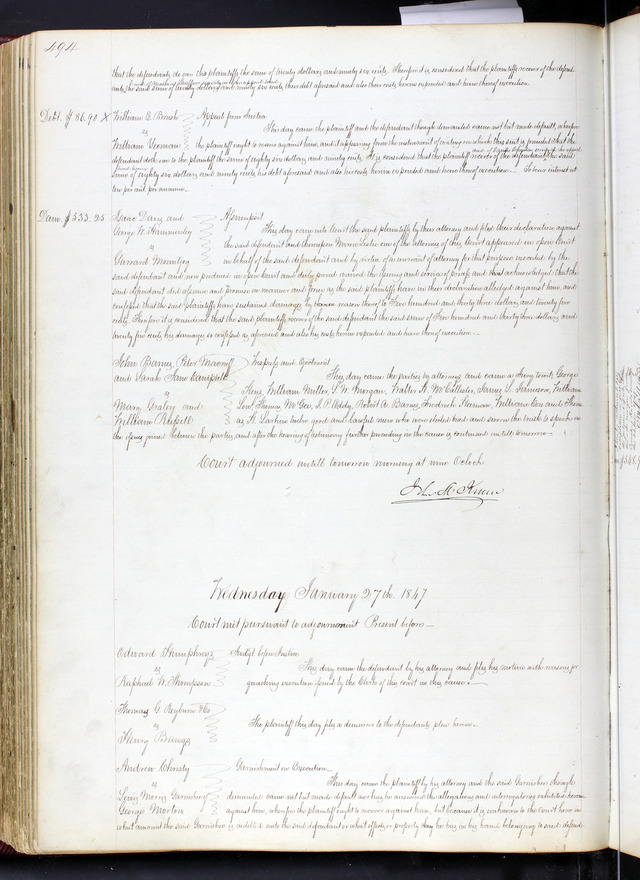 494
that the defendants do owe the plaintiffs the sum of twenty dollars and ninety six cents. Therefore it is considered that the plaintiffs recover of the defend-
ants, the said sum of twenty dollars and ninety six cents their debt aforesaid and also their costs herein expended and have thereof execution.
Debt. $86.90 X William E. Brush Appeal from Justice
vs This day came the plaintiff and the defendant though demanded came not but made default, wherefore
William Yeoman the plaintiff ought to recover against him, and it appearing from the instrument of writing on which this suit is founded that the
defendant doth owe to the plaintiff the sum of eighty six dollars and ninety cents. It is considered that the plaintiff recover of the defendant the said
sum of eighty six dollars and ninety cents his debt aforesaid and also his costs herein expended and have thereof execution. To bear interest at
ten per cent per annum.
Dam. $533.25 Isaac Davis and Assumpsit
George W. Hammersley This day came into Court the said plaintiffs by their attorney and files their declaration against
vs the said defendant and thereupon Myron Leslie one of the attorneys of this Court appeared in open Court
Garrard on behalf of the said defendant and by virtue of a warrant of attorney for that purpose executed by the
said defendant and now produced in open Court and duly proved waived the issuing and service of process and this acknowledged that the
said defendant did assume and promise in manner and form as the said plaintiffs have in their declaration alledged against him, and
confessed that the said plaintiffs have sustained damages by reason thereof to Five hundred and thirty three dollars and twenty five
cents. Therefore it is considered that the said plaintiffs recover of the said defendant the said sum of Five hundred and thirty three dollars and
twenty five cents his damages so confessed as aforesaid and also his costs herein expended and have thereof execution.
John Barnes, Peter Trespass and Ejectment
and Sarah Jane Campbell This day came the parties by attorney and came a Jury towit, George
vs King, William Miller, S. W. Morgan, Walter H. McCallister, James S. Jamison, William
Mary Gealey and Thomas McGee, J. P. Robert A. Barnes, Frederick William and Thomas
William Russell H. Larkin twelve good and lawful men who were elected tried and sworn the truth to speak on
the issue joined between the parties, and after the hearing of testimony further proceeding in the cause is continued untill tomorrow.
Court adjourned untill tomorrow morning at nine Oclock
John M. Krum
Wednesday January 27th. 1847
Court met pursuant to adjournment Present before
Edward Humphreys Judgt before Justice
vs This day came the defendant by his attorney and files his motion with reasons for
Raphael W. Thompson quashing execution issued by the Clerk of this court in this cause.
Thomas G. Reyburn & Co
vs The plaintiff this day files a demurrer to the defendants plea herein.
Henry Bangs
Andrew Christy Garnishment on Execution
vs This day came the plaintiff by his attorney and the said Garnishee though
Garnishee of demanded came not but made default nor has he answered the allegations and interrogatories exhibited herein
George Morton against him, wherefore the plaintiff ought to recover against him, but because it is unknown to the Court here in
what amount the said Garnishee is indebted unto the said defendant or what effects or property they be in his hands belonging to said defend-